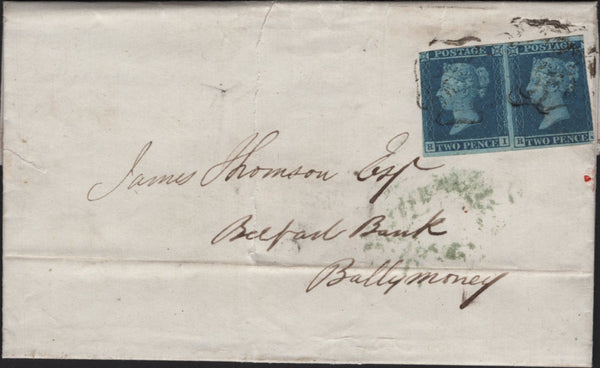 POSTAGE POSTAGE
R I TWO PENCE R TWO PENCE
James Thomson Esqr
Belfast Bank
Ballymoney